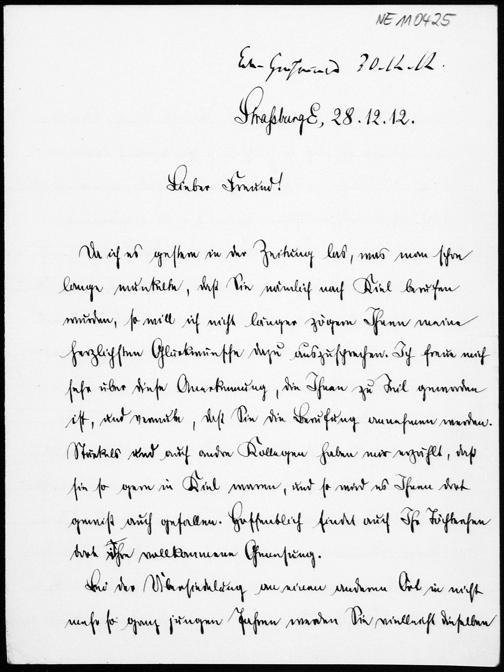 NE 110425
30.12.12.
Straßburg E, 28.12.12.
Lieber Freund!
Da ich es gestern in der Zeitung las, was man schon
lange munkelte, daß Sie nämlich nach Kiel berufen
wurden, so will ich nicht länger zögern Ihnen meine
herzlichsten Glückwünsche dazu auszusprechen. Ich freue mich
sehr über diese Anerkennung, die Ihnen zu Teil geworden
ist, und vermute, daß Sie die Berufung annehmen werden.
und auch andre Kollegen haben mir erzählt, daß
sie so gern in Kiel waren, und so wird es Ihnen dort
gewiß auch gefallen. Hoffentlich findet auch Ihr Töchterchen
dort ihre vollkommene Genesung.
Bei der Übersiedelung an einen anderen Ort in nicht
mehr so ganz jungen Jahren werden Sie vielleicht dieselben